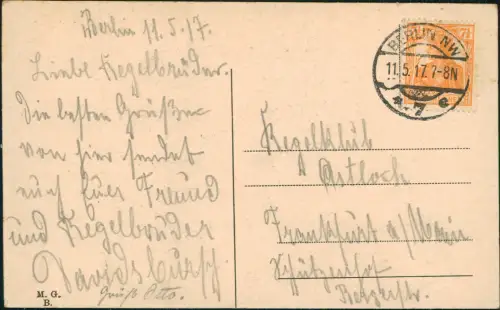 Berlin 11.5.17.
Liebe Kegelbrüder.
Die besten Grüße
von hier sendet
auch Euer Freund
und Kegelbruder
Davidsbursch
Gruß Otto.
M. G.
B.
7½
BERLIN NW
11.5.17.7-8N
Kegelklub
Ostloch
Frankfurt a/Main
Schützenhof